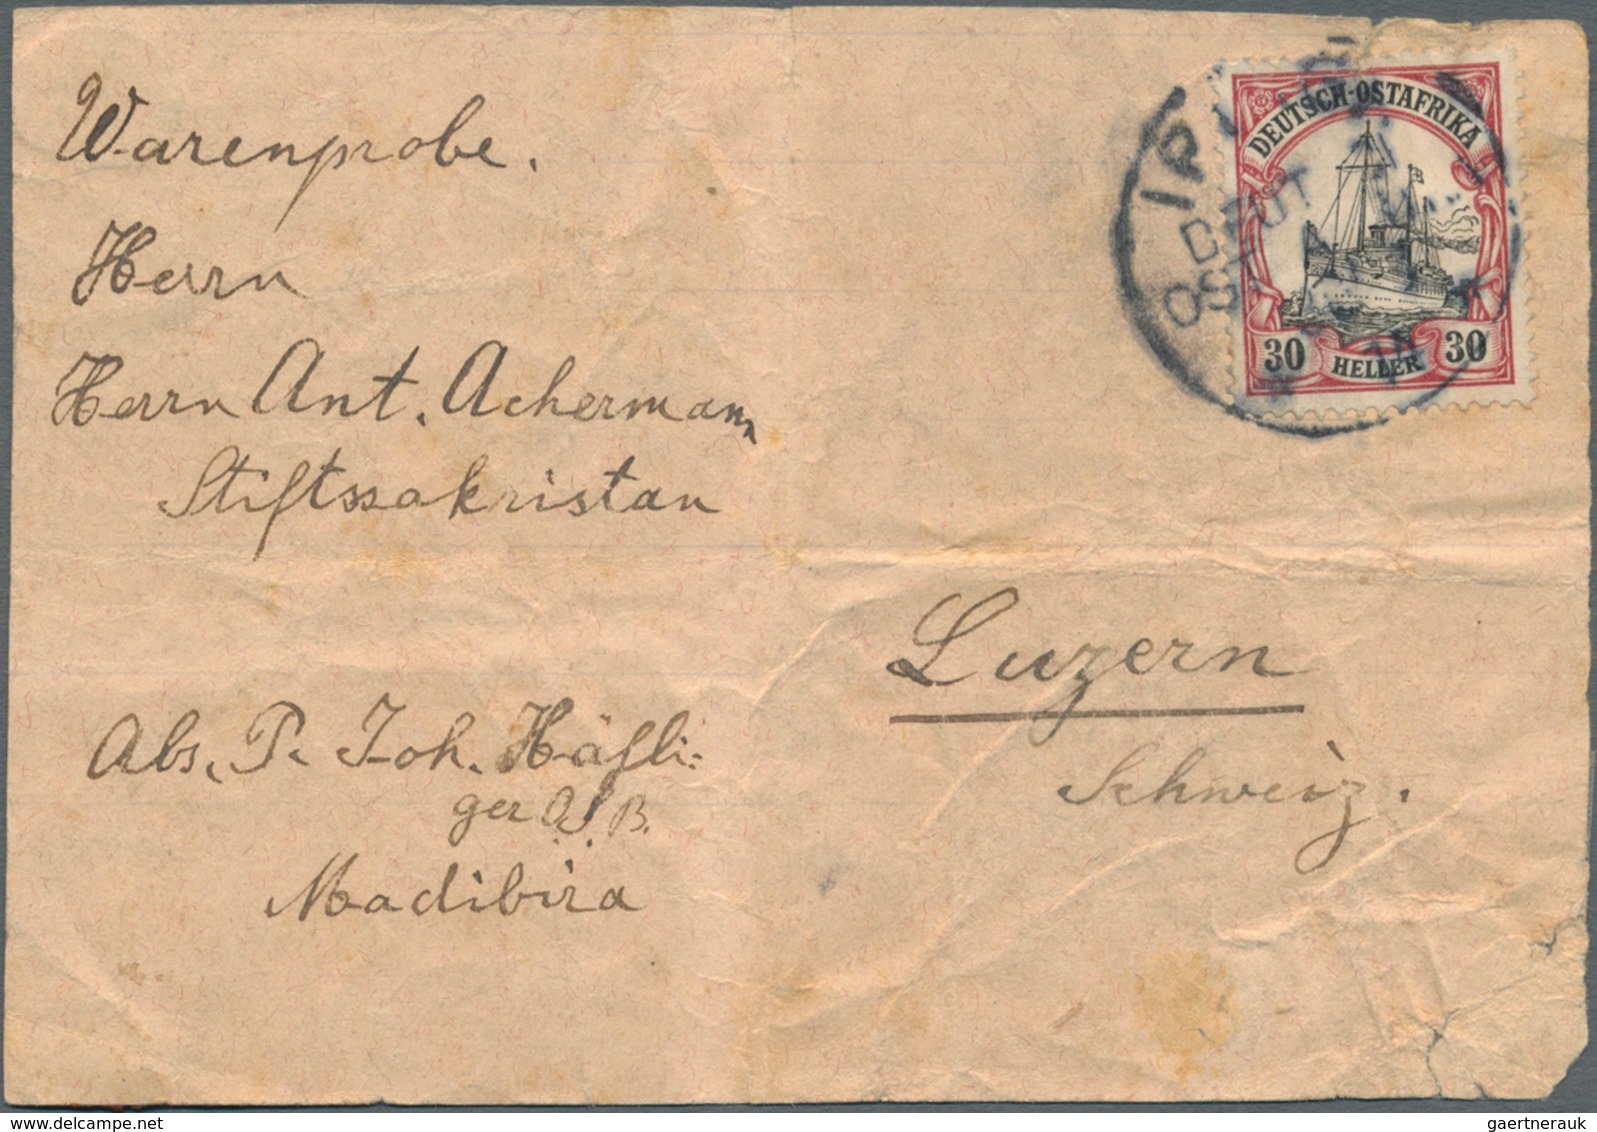 Warenprobe.
Herrn
Herrn Ant. Achermann
Stiftssakristan
Luzern
Schweiz.
Abs. P. Joh. Häfli-
ger O.S.B.
Madibira
DEUTSCH-OSTAFRIKA
30 HELLER 30
gaertnerauk